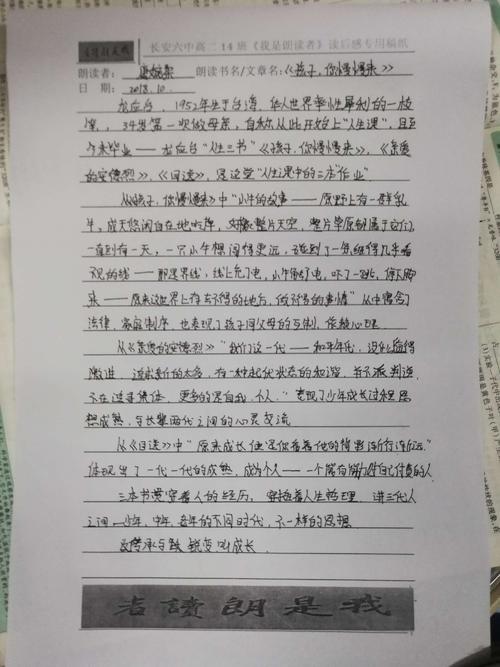 长安六中高二14班《我是朗读者》读后感专用稿纸
朗读者: 朗读书名/文章名:《孩子,你慢慢来》
日 期: 2018.10.
龙应台,1952年生于台湾,华人世界率性犀利的一枝
笔,34岁第一次做母亲,自称从此开始上"人生课",且至
今未毕业——龙应台"人生三书"《孩子,你慢慢来》,《亲爱
的安德烈》,《目送》,是这堂"人生课中的三本"作业"
从《孩子,你慢慢来》中"小牛的故事——原野上有一群乳
牛,成天悠闲自在地吃草,好像整片天空,整片草原都属于它们,
一直到有一天,一只小牛想闯得更远,碰到了一条细得几乎看
不见的线——那是界线,线上充了电,小牛触了电,吓了一跳,停下脚
来——原来这世界上有去不得的地方,做不得的事情"从中包含了
法律,家庭制度,也表现了孩子同父母的牵制,依赖心理.
从《亲爱的安德烈》"我们这一代——和平年代,没什么值得
激进,追求新的太多,有一种起伏状态的和谐,并不激判逆,
不在追寻集体,更多的是自我,个人."表现了少年成长过程思
想成熟,与长辈两代之间的心灵交流
从《目送》中"原来成长便是你看着他的背影渐行渐远."
体现出了一代一代的成熟,成为个人——一个能有能力对自己付责的人.
三本书贯穿着人的经历,穿插着人生哲理,讲三代人
之间——少年,中年,老年的不同时代,不一样的思想
蜕变叫成长.
者读朗是我